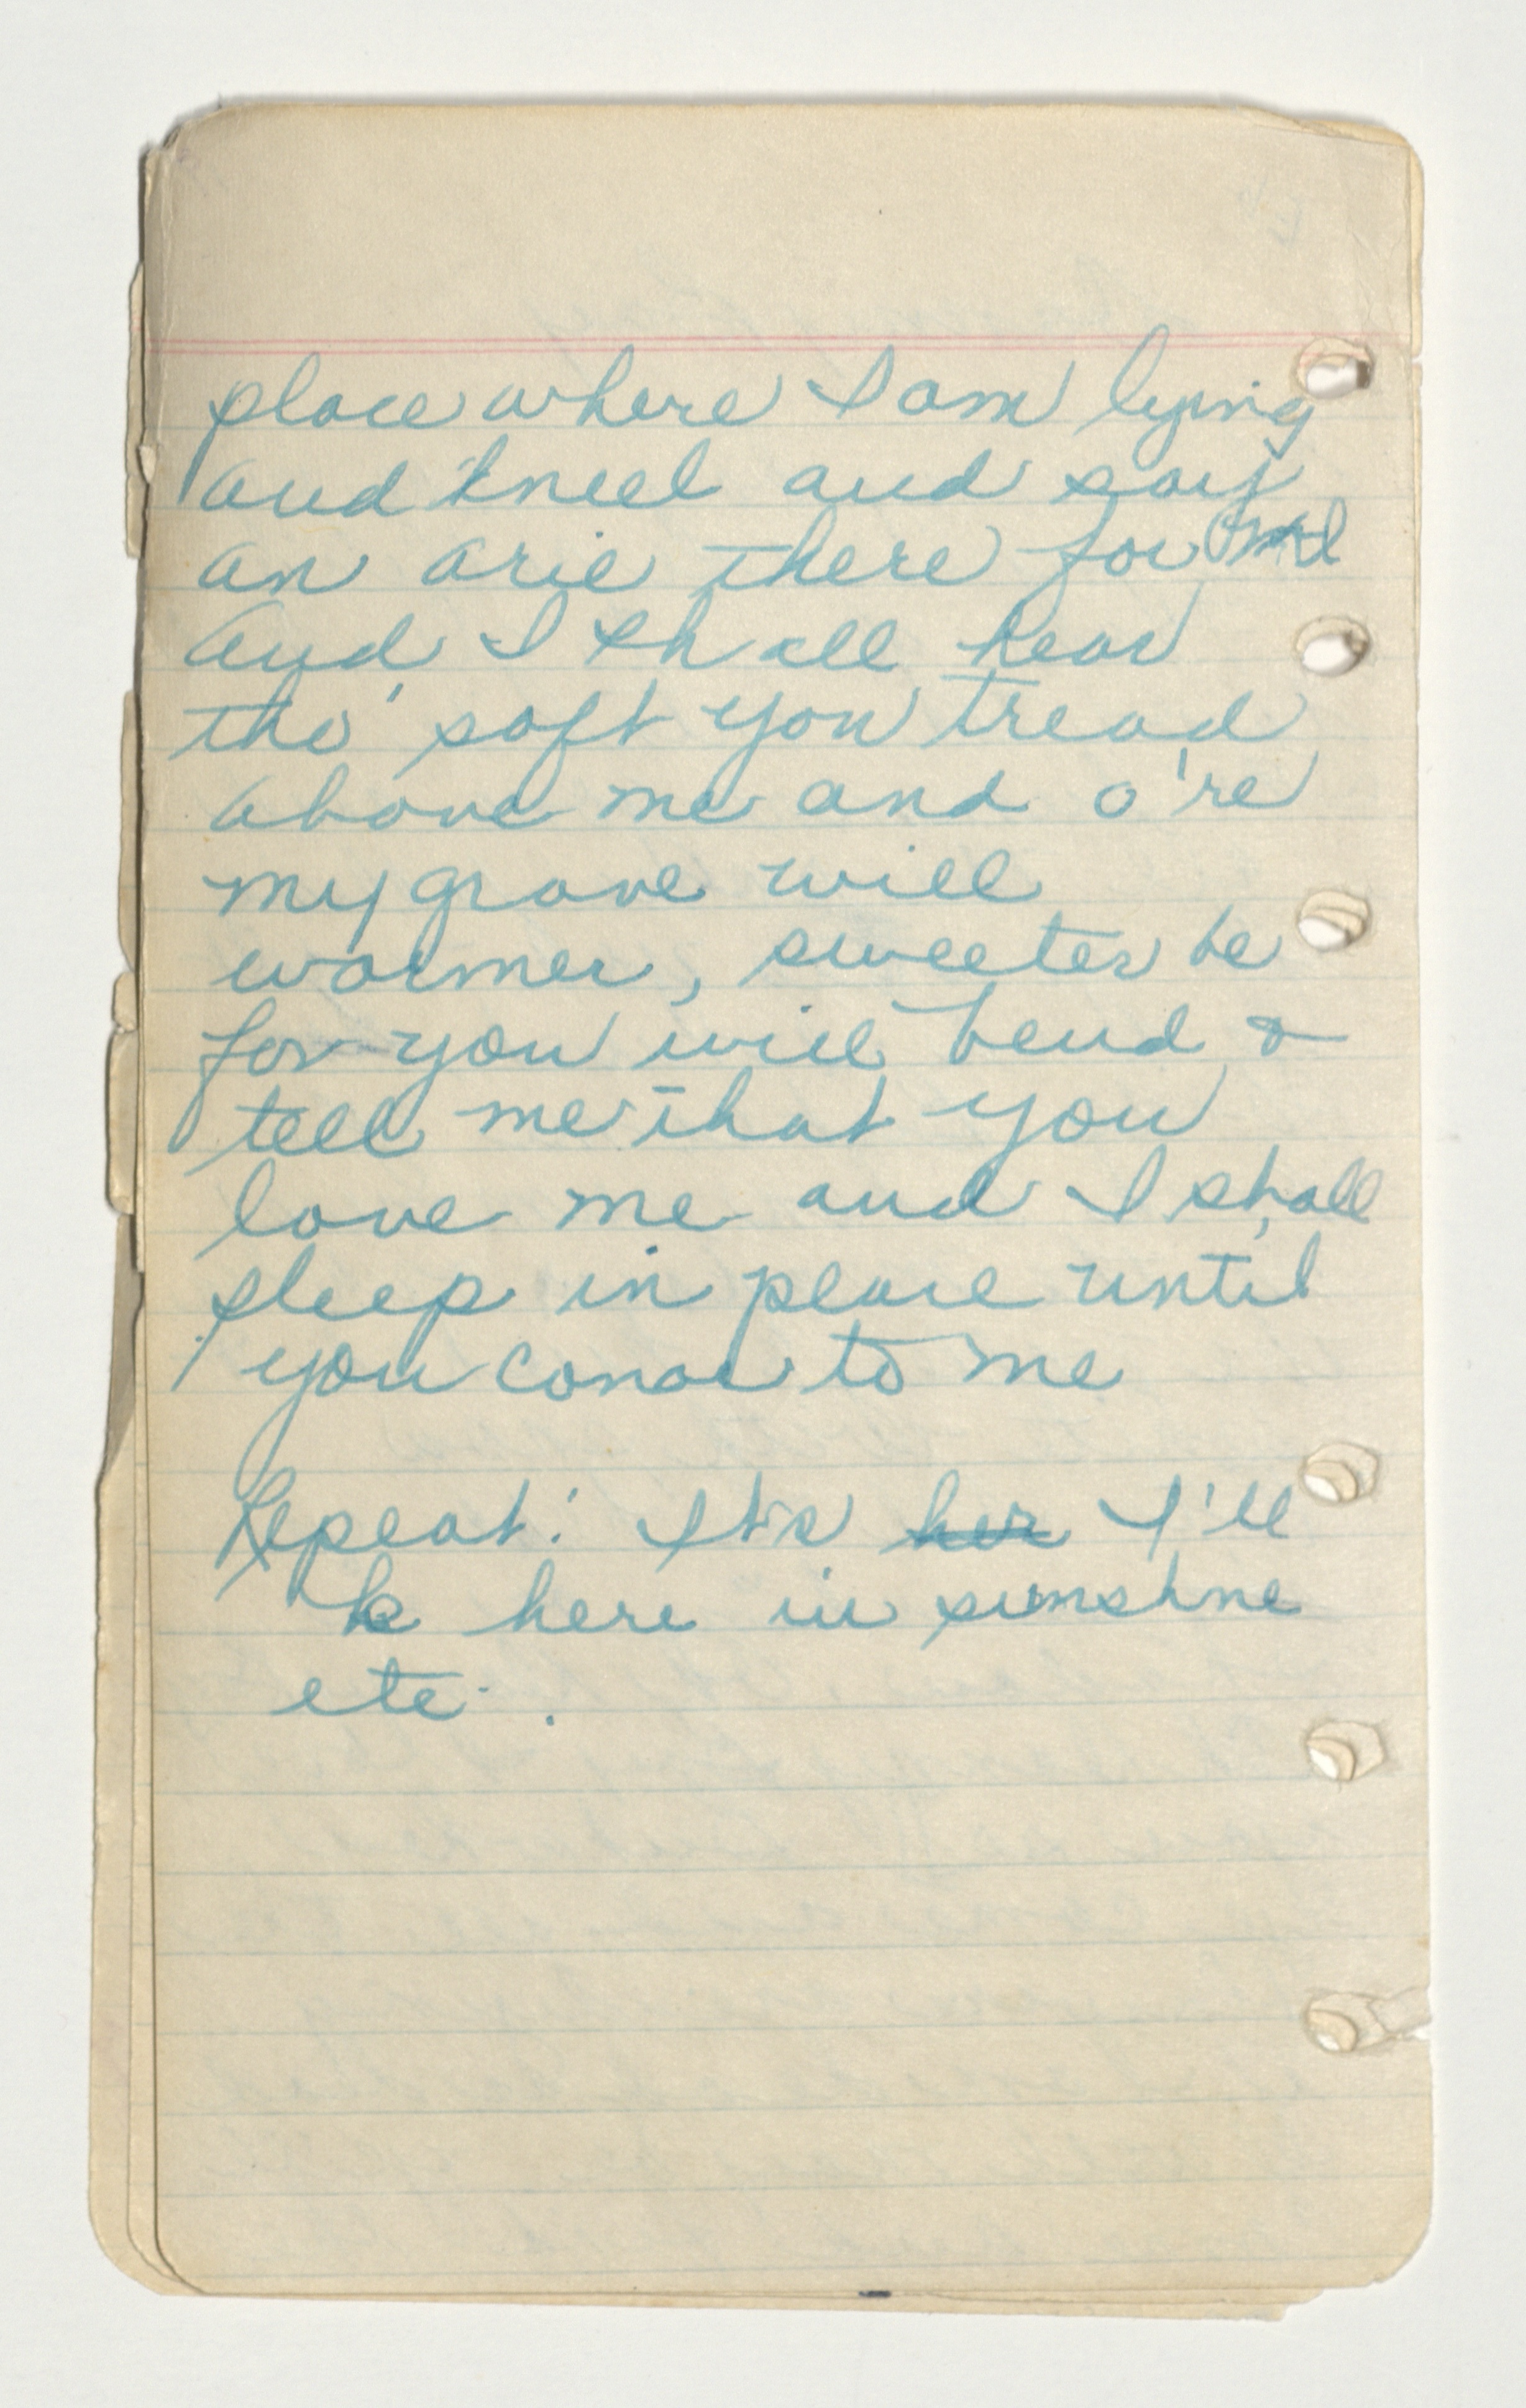 place where I am lying
and kneel and say
an arie there for me
and I shall hear
tho' soft you tread
above me and o're
my grave will
warmer, sweeter be
for you will bend &
tell me that you
love me and I shall
sleep in peace until
you come to me
Repeat: Its her I'll
be here in sunshine
etc.